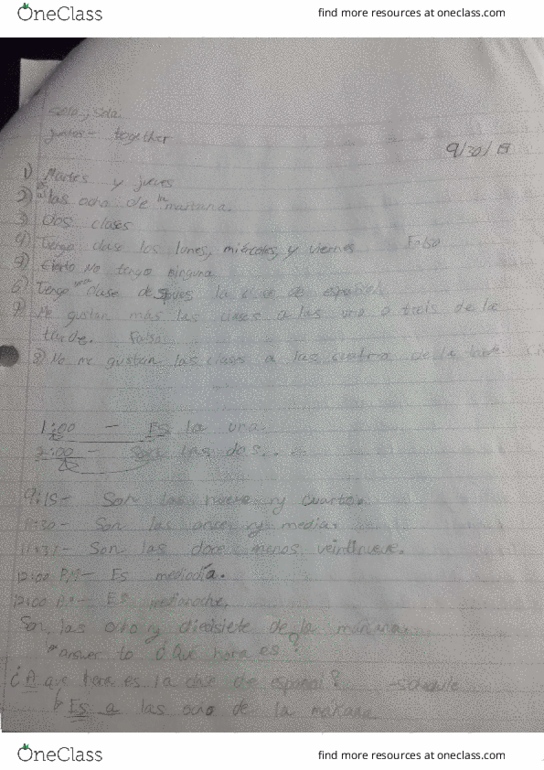 OneClass find more resources at oneclass.com
solo, sola.
juntos - together
9/30/15
1) Martes y jueves
2) a las ocho de la mañana.
3) Dos clases
4) Tengo clase los lunes, miércoles, y viernes Falso
5) Cierto No tengo ninguna
6) Tengo una clase después la clase de español
7) Me gustan más las clases a las una o tres de la
tarde. Falsa
8) No me gustan las clases a las cuatro de la tarde
1:00 - Es la una.
2:00 - Son las dos..
9:15 - Son las nueve y cuarto.
11:30 - Son las once y media.
11:31 - Son las doce menos veintinueve.
12:00 PM - Es mediodía.
12:00 AM - Es medianoche.
Son las ocho y diecisiete de la mañana.
*answer to ¿Que hora es?
¿A que hora es la clase de español? - schedule
Es a las ocho de la mañana
OneClass find more resources at oneclass.com